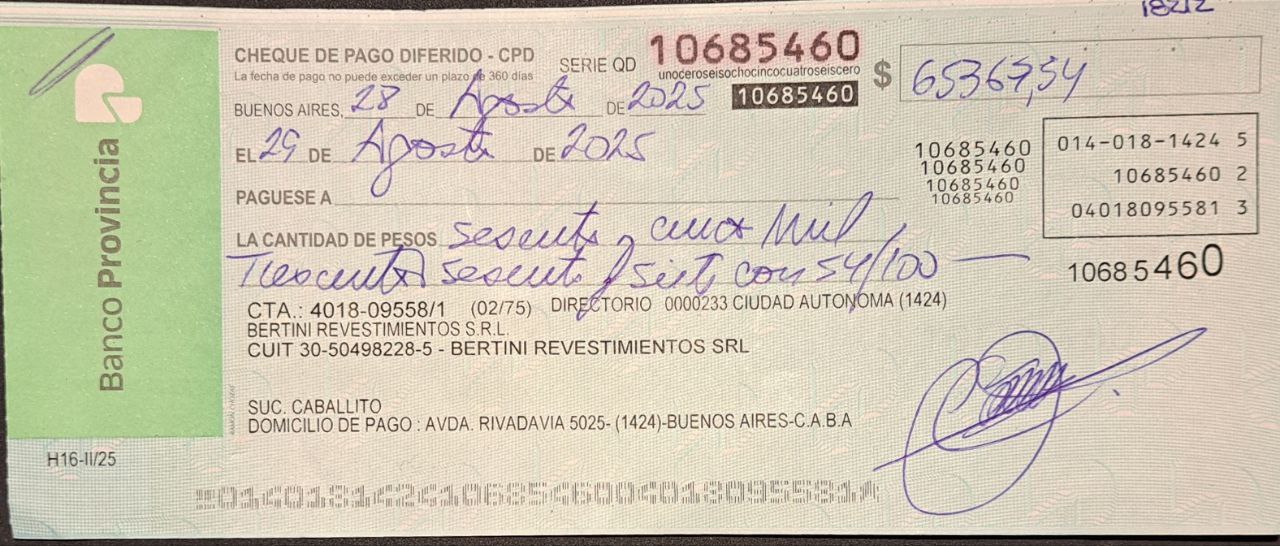 18212
CHEQUE DE PAGO DIFERIDO - CPD
La fecha de pago no puede exceder un plazo de 360 días
SERIE QD 10685460
unoceroseisochocincocuatroseiscero
10685460
$ 65367,54
BUENOS AIRES, 28 DE Agosto DE 2025
EL 29 DE Agosto DE 2025
PAGUESE A
10685460
10685460
10685460
10685460
014-018-1424 5
10685460 2
04018095581 3
LA CANTIDAD DE PESOS sesenta y cinco Mil
Trescientos sesenta y siete con 54/100
10685460
CTA.: 4018-09558/1 (02/75) DIRECTORIO 0000233 CIUDAD AUTONOMA (1424)
BERTINI REVESTIMIENTOS S.R.L.
CUIT 30-50498228-5 - BERTINI REVESTIMIENTOS SRL
SUC. CABALLITO
DOMICILIO DE PAGO : AVDA. RIVADAVIA 5025- (1424)-BUENOS AIRES-C.A.B.A
Banco Provincia
H16-II/25